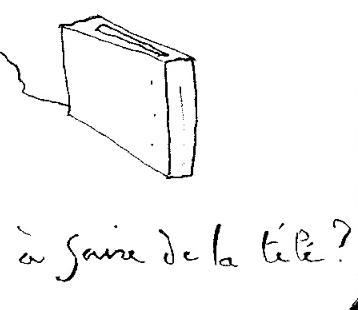 à faire de la télé?